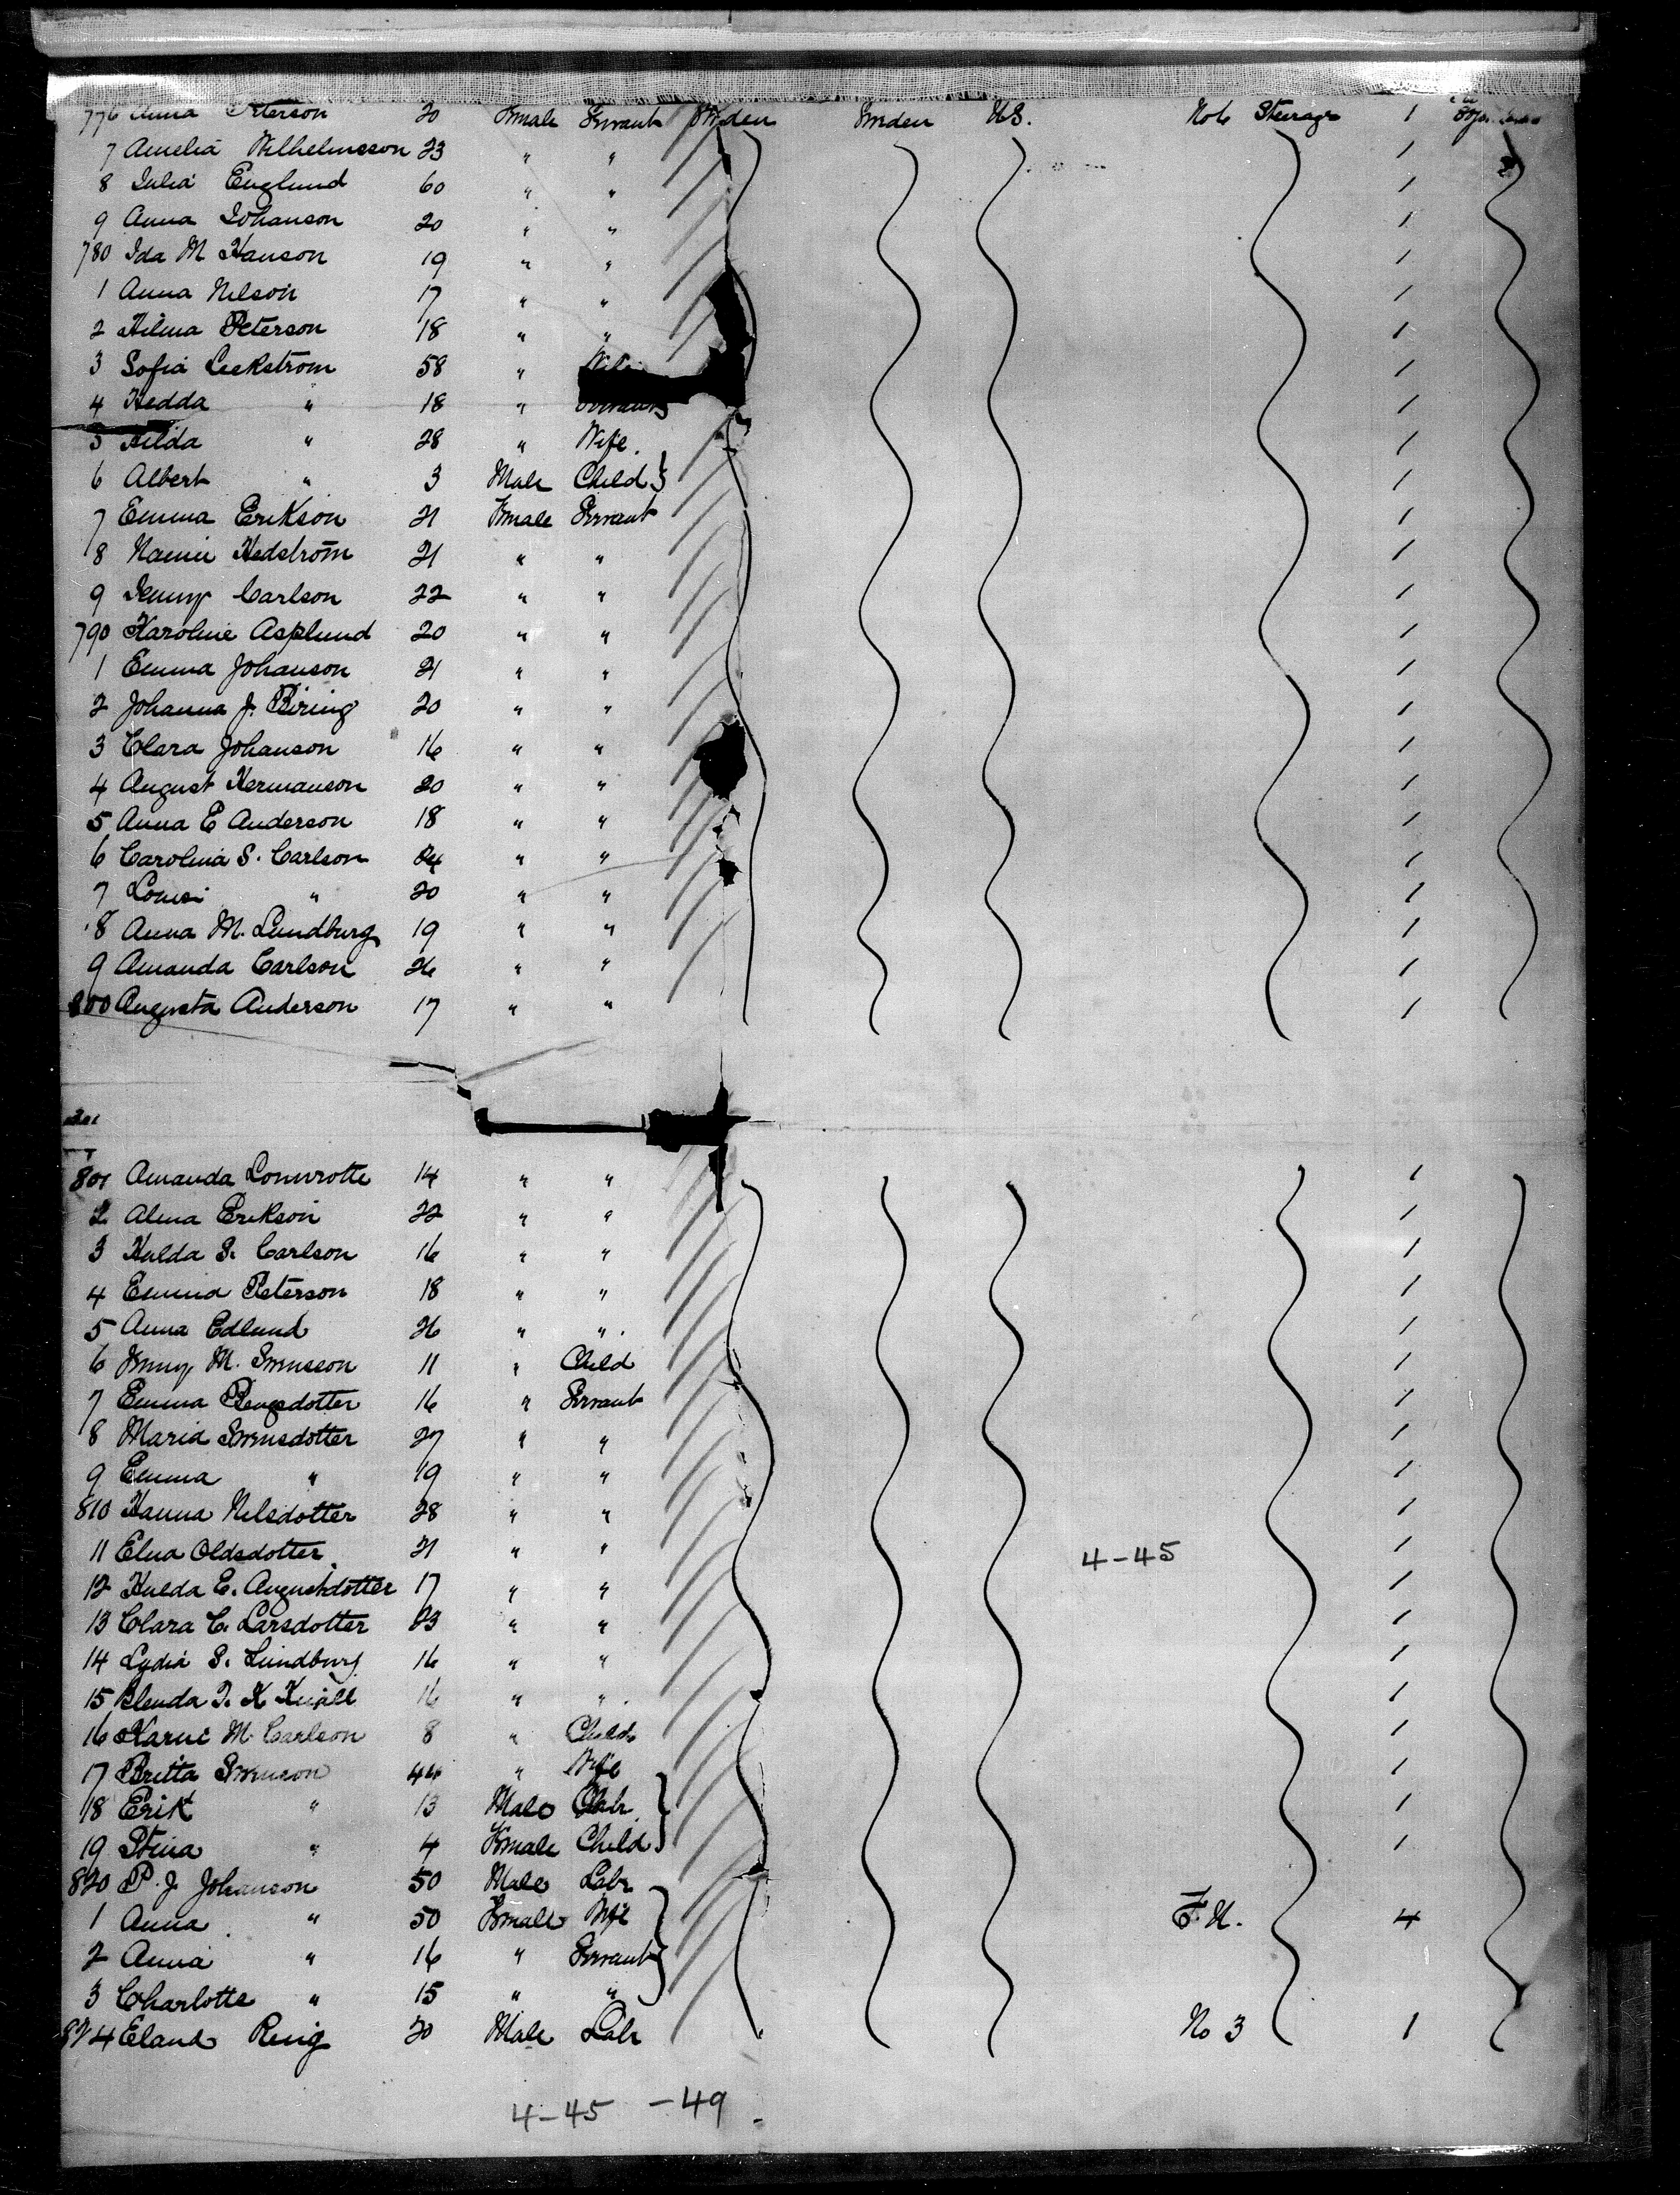 776 Anna Peterson 20 Female Servant Sweden Sweden U.S. No 6 Steerage 1
7 Amelia Wilhelmsson 23 " " /
8 Julia Englund 60 " " /
9 Anna Johanson 20 " " /
780 Ida M Hanson 19 " " /
1 Anna Nelson 17 " " /
2 Hilma Peterson 18 " " /
3 Sofia Leekstrom 58 " Wife /
4 Hedda " 18 " Servant /
5 Hilda " 28 " Wife. /
6 Albert " 3 Male Child } /
7 Emma Erikson 21 Female Servant /
8 Hedström 21 " " /
9 Jenny Carlson 22 " " /
790 Karoline Asplund 20 " " /
1 Emma Johanson 21 " " /
2 Johanna J. 20 " " /
3 Clara Johanson 16 " " /
4 August Hermanson 20 " " /
5 Anna E Anderson 18 " " /
6 Carolina S. Carlson 24 " " /
7 Lowisi " 20 " " /
8 Anna M. Lundburg 19 " " /
9 Amanda Carlson 26 " " /
800 Augusta Anderson 17 " " /
801 Amanda 14 " " /
2 Alma Erikson 22 " " /
3 Hulda S. Carlson 16 " " /
4 Emma Peterson 18 " " /
5 Anna Edlund 26 " " /
6 Jenny M. Svensson 11 " Child /
7 Emma Bengsdotter 16 " Servant /
8 Maria Svensdotter 27 " " /
9 Emma " 19 " " /
810 Hanna Nelsdotter 28 " " /
11 Elna Oldsdotter 21 " " 4-45 /
12 Hulda E. Augustdotter 17 " " /
13 Clara C. Larsdotter 23 " " /
14 Lydia S. Lundburg 16 " " /
15 Blenda 16 " " /
16 M. Carlson 8 " Child /
17 Britta Svenson 44 " Wife /
18 Erik " 13 Male Labr /
19 Stina " 4 Female Child } /
820 P. J. Johanson 50 Male Labr
1 Anna " 50 Female Wife F.H. 4
2 Anna " 16 " Servant
3 Charlotte " 15 " " }
824 Eland Renig 20 Male Labr No 3 1
4-45 -49